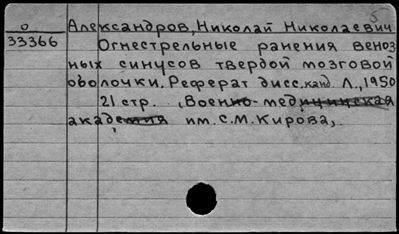 5
О Александров, Николай Николаевич
33366 Огнестрельные ранения веноз
ных синусов твердой мозговой
оболочки. Реферат дисс. канд. Л., 1950
21 стр. (Военно-медицинская
академия им. С.М. Кирова,.